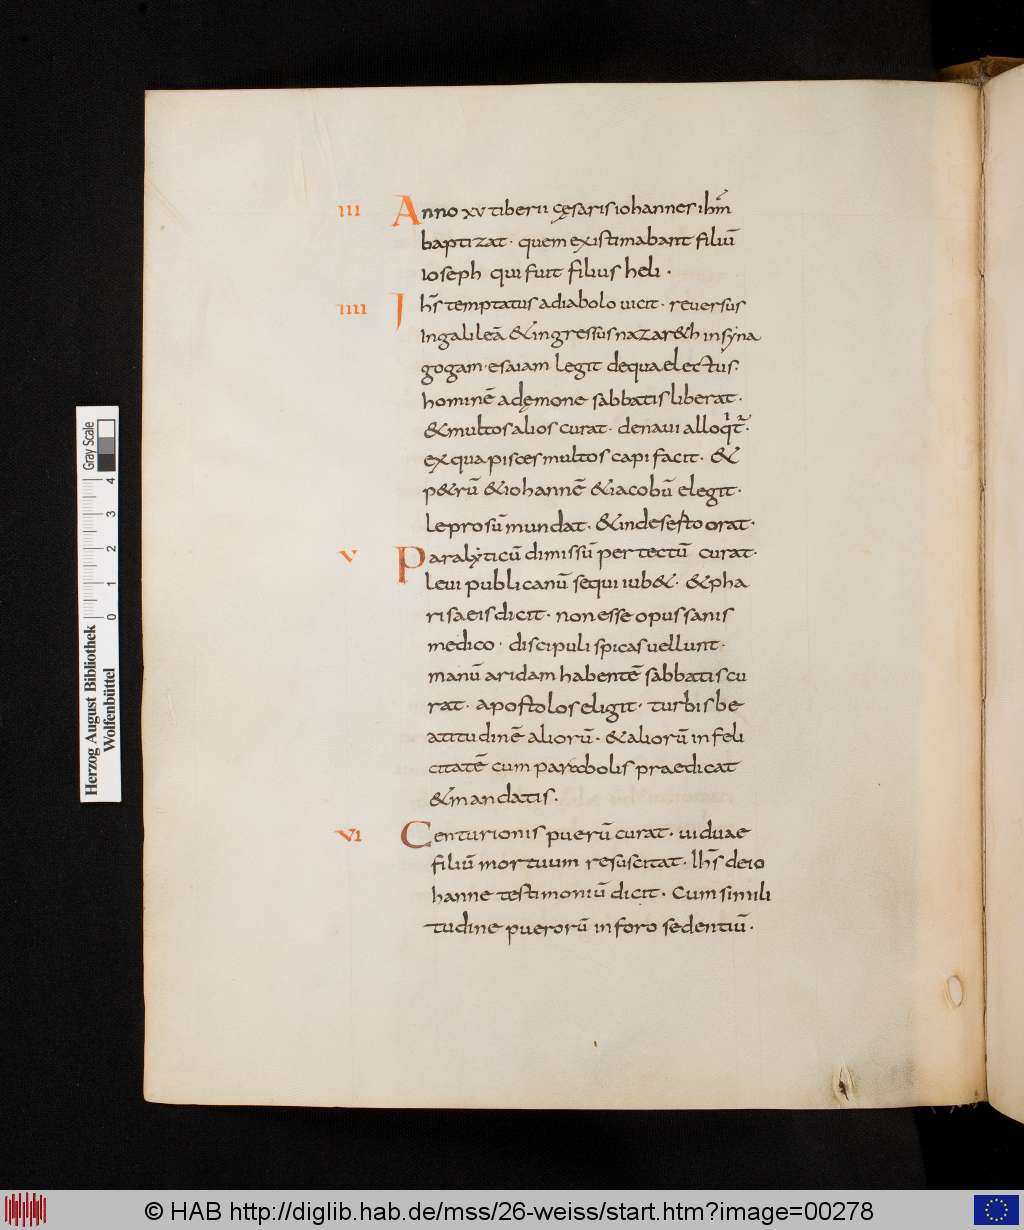 III Anno xv tiberii cęsaris iohannes ihm̄
baptizat · quem existimabant filiū
ioseph qui fuit filius heli ·
IIII Ihs̄ temptatus a diabolo uicit · reuersus
In galileā & ingressus nazar&h in syna
gogam · esaiam legit de qua electus:
hominē a dęmone sabbatis liberat ·
& multos alios curat · de naui alloq̇t̄ ·
ex qua pisces multos capi facit · &
p&rū & iohannē & iacobū elegit ·
leprosū mundat · & in deserto orat ·
V Paralyticū dimissū per tectū curat ·
leui publicanū sequi iub& · & pha
risaeis dicit · non esse opus sanis
medico · discipuli spicas uellunt ·
manū aridam habentē sabbatis cu
rat · apostolos eligit · turbis be
atitudinē aliorū · & aliorū infeli
citatē cum parabolis praedicat
& mandatis ·
VI Centurionis puerū curat · uiduae
filiū mortuum resuscitat · Ihs̄ de io
hanne testimoniū dicit · Cum simili
tudine puerorū in foro sedentiū ·
Herzog August Bibliothek
Wolfenbüttel
0 1 2 3 4
Gray Scale
© HAB http://diglib.hab.de/mss/26-weiss/start.htm?image=00278